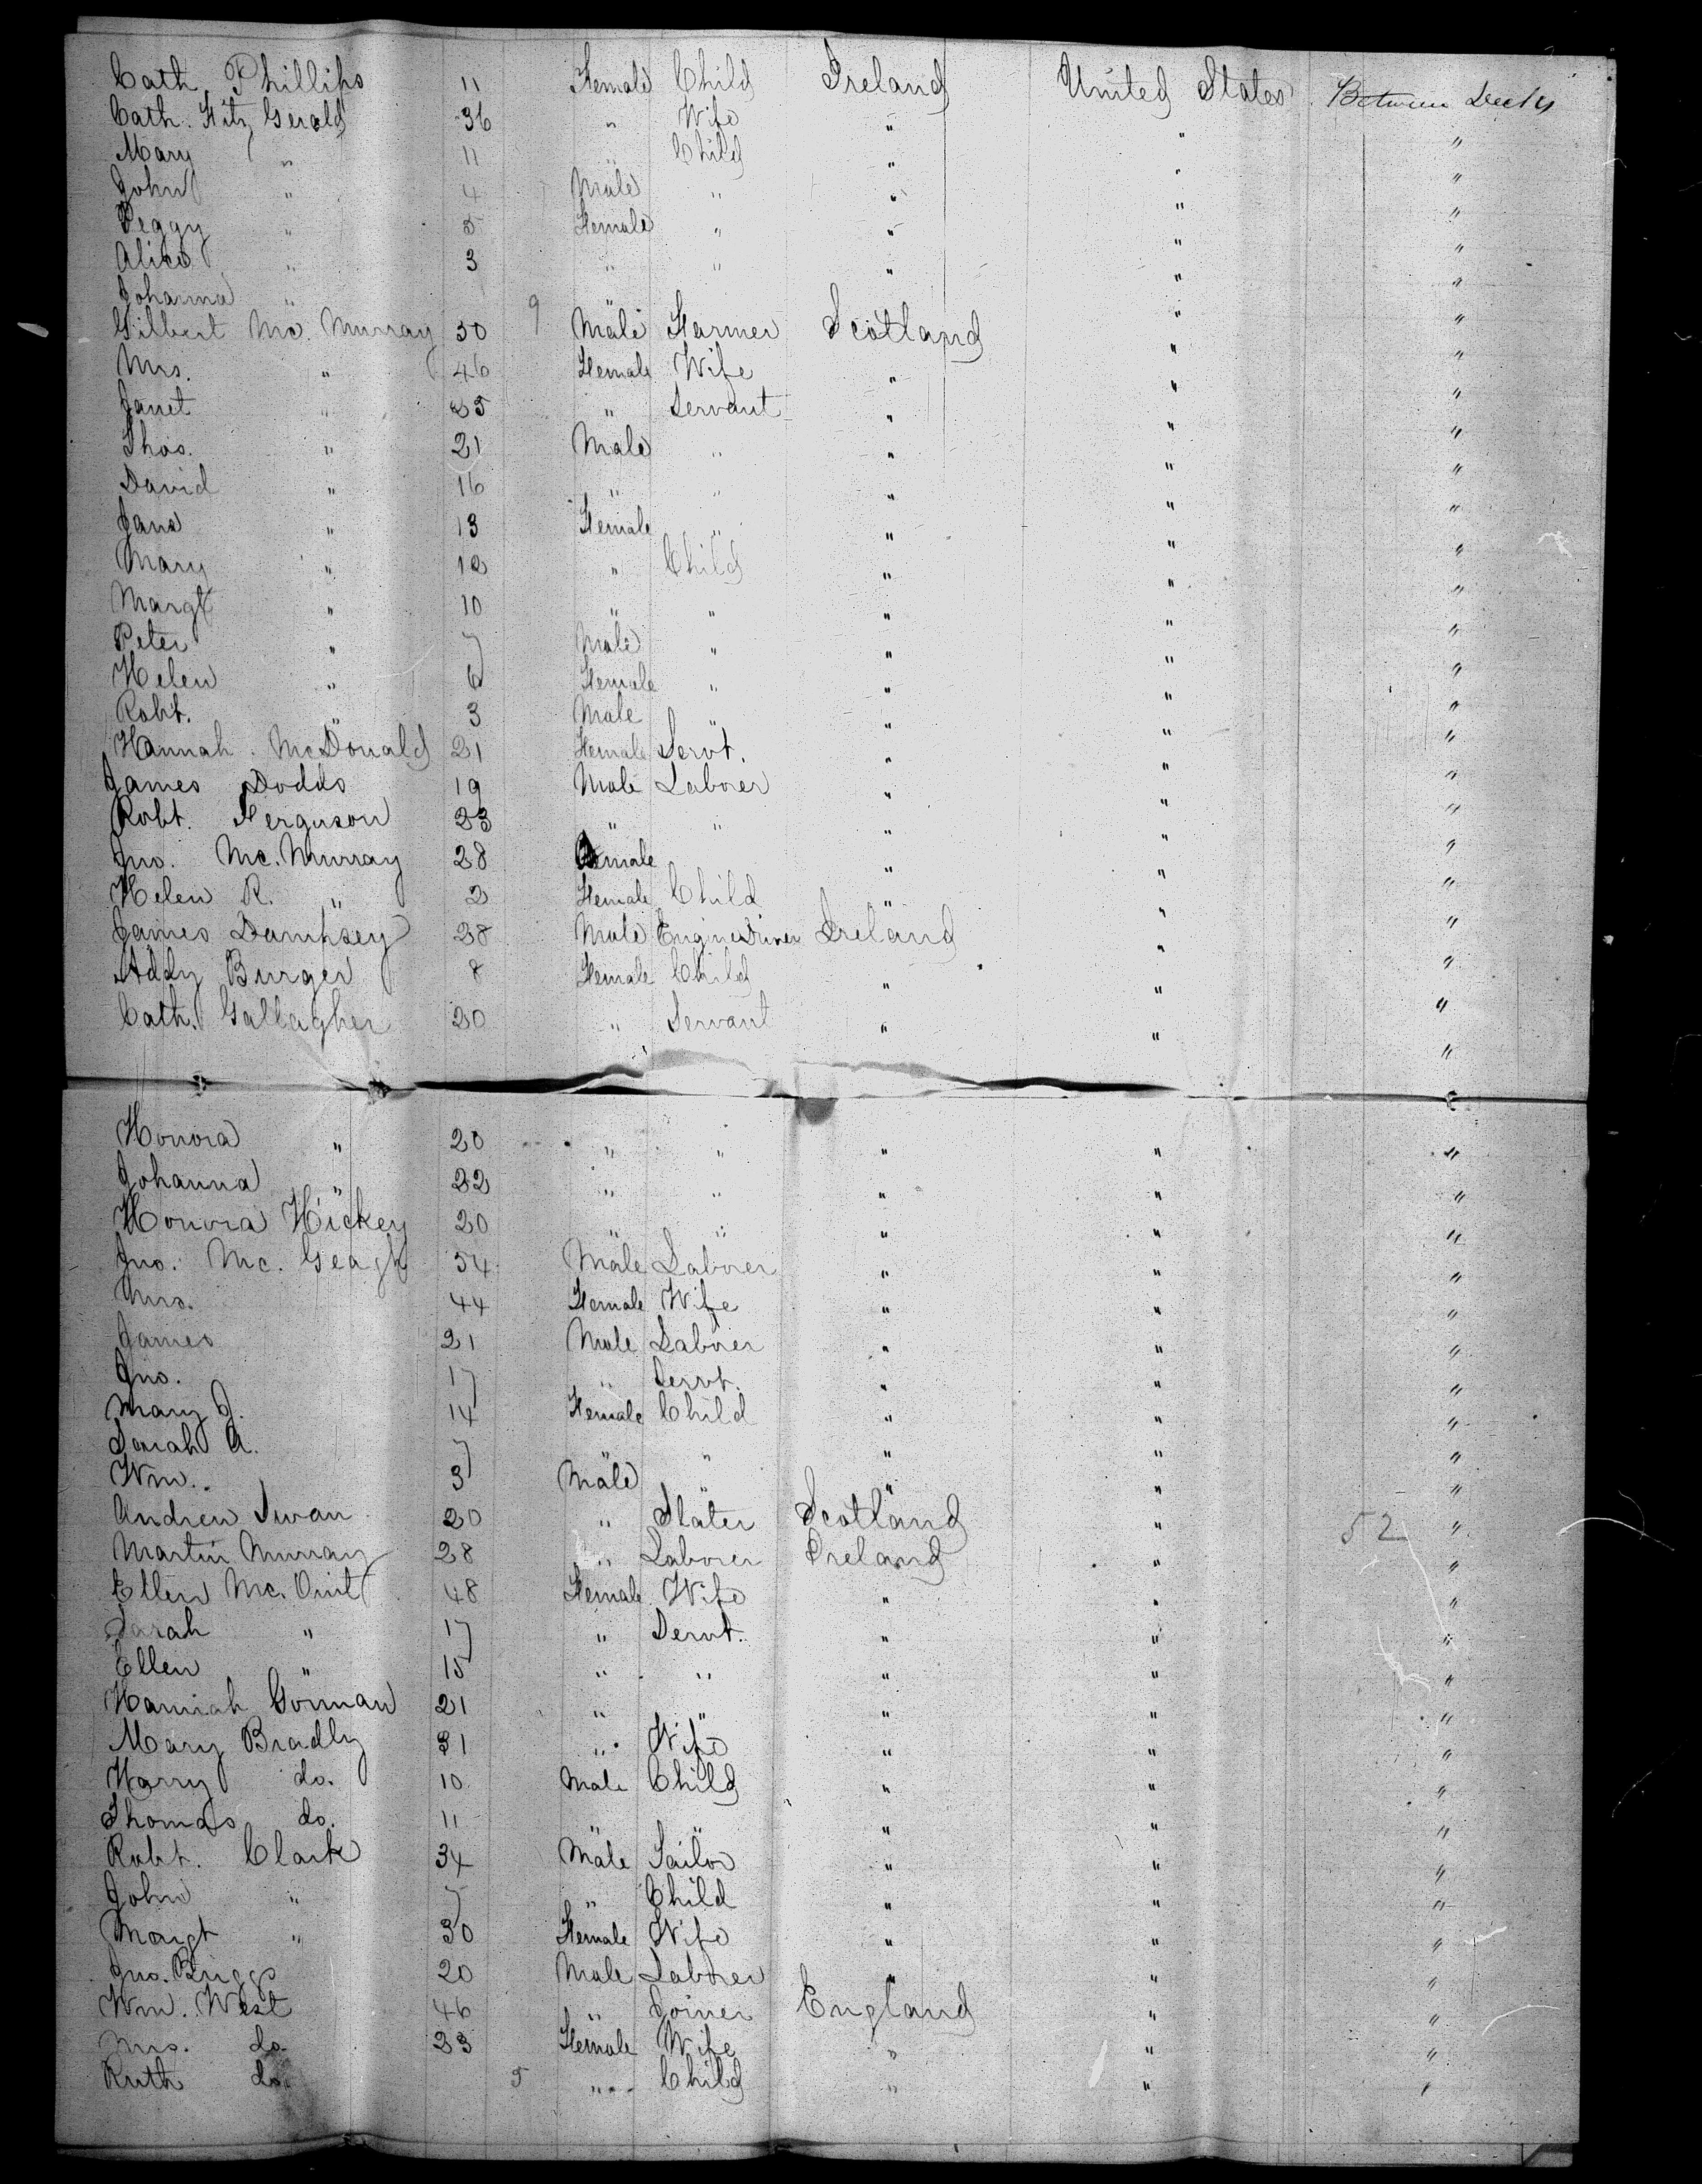 Cath. Phillips 11 Female Child Ireland United States Between Decks
Cath. Fitz Gerald 36 " Wife " " "
Mary " 11 " Child " " "
John " 4 Male " " " "
Peggy " 5 Female " " " "
Alice " 3 " " " " "
Johanna " 9 " " " " "
Gilbert Mc. Murray 50 Male Farmer Scotland " "
Mrs. " 46 Female Wife " " "
Janet " 25 " Servant " " "
Thos. " 21 Male " " " "
David " 16 " " " " "
Jane " 13 Female " " " "
Mary " 12 " Child " " "
Margt " 10 " " " " "
Peter " 7 Male " " " "
Helen " 6 Female " " " "
Robt. " 3 Male " " " "
Hannah McDonald 21 Female Servt. " " "
James Dodds 19 Male Laborer " " "
Robt. Ferguson 23 " " " " "
Jno. Mc. Murray 28 Female " " "
Helen R. " 2 Female Child " " "
James Damhsey 28 Male Engine Driver Ireland " "
Addy Burger 8 Female Child " " "
Cath. Gallagher 20 " Servant " " "
"
Honora " 20 " " " " "
Johanna " 22 " " " " "
Honora Hickey 20 " " " " "
Jno. Mc. Geagh 54 Male Laborer " " "
Mrs. 44 Female Wife " " "
James 21 Male Laborer " " "
Jno. 17 " Servt. " " "
Mary J. 14 Female Child " " "
Sarah A. 7 " " " " "
Wm. 3 Male " " " "
Andrew Swan 20 " Slater Scotland " 52 "
Martin Murray 28 " Laborer Ireland " "
Ellen Mc. 48 Female Wife " " "
Sarah " 17 " Servt. " " "
Ellen " 15 " " " " "
Hannah Gorman 21 " " " " "
Mary Bradly 31 " Wife " " "
Harry do. 10 Male Child " " "
Thomas do. 11 " " " " "
Robt. Clark 34 Male Sailor " " "
John " 7 " Child " " "
Margt " 30 Female Wife " " "
Jno. Briggs 20 Male Laborer " " "
Wm. West 46 " Joiner England " "
Mrs. do. 33 Female Wife " " "
Ruth do. 5 " Child " " "